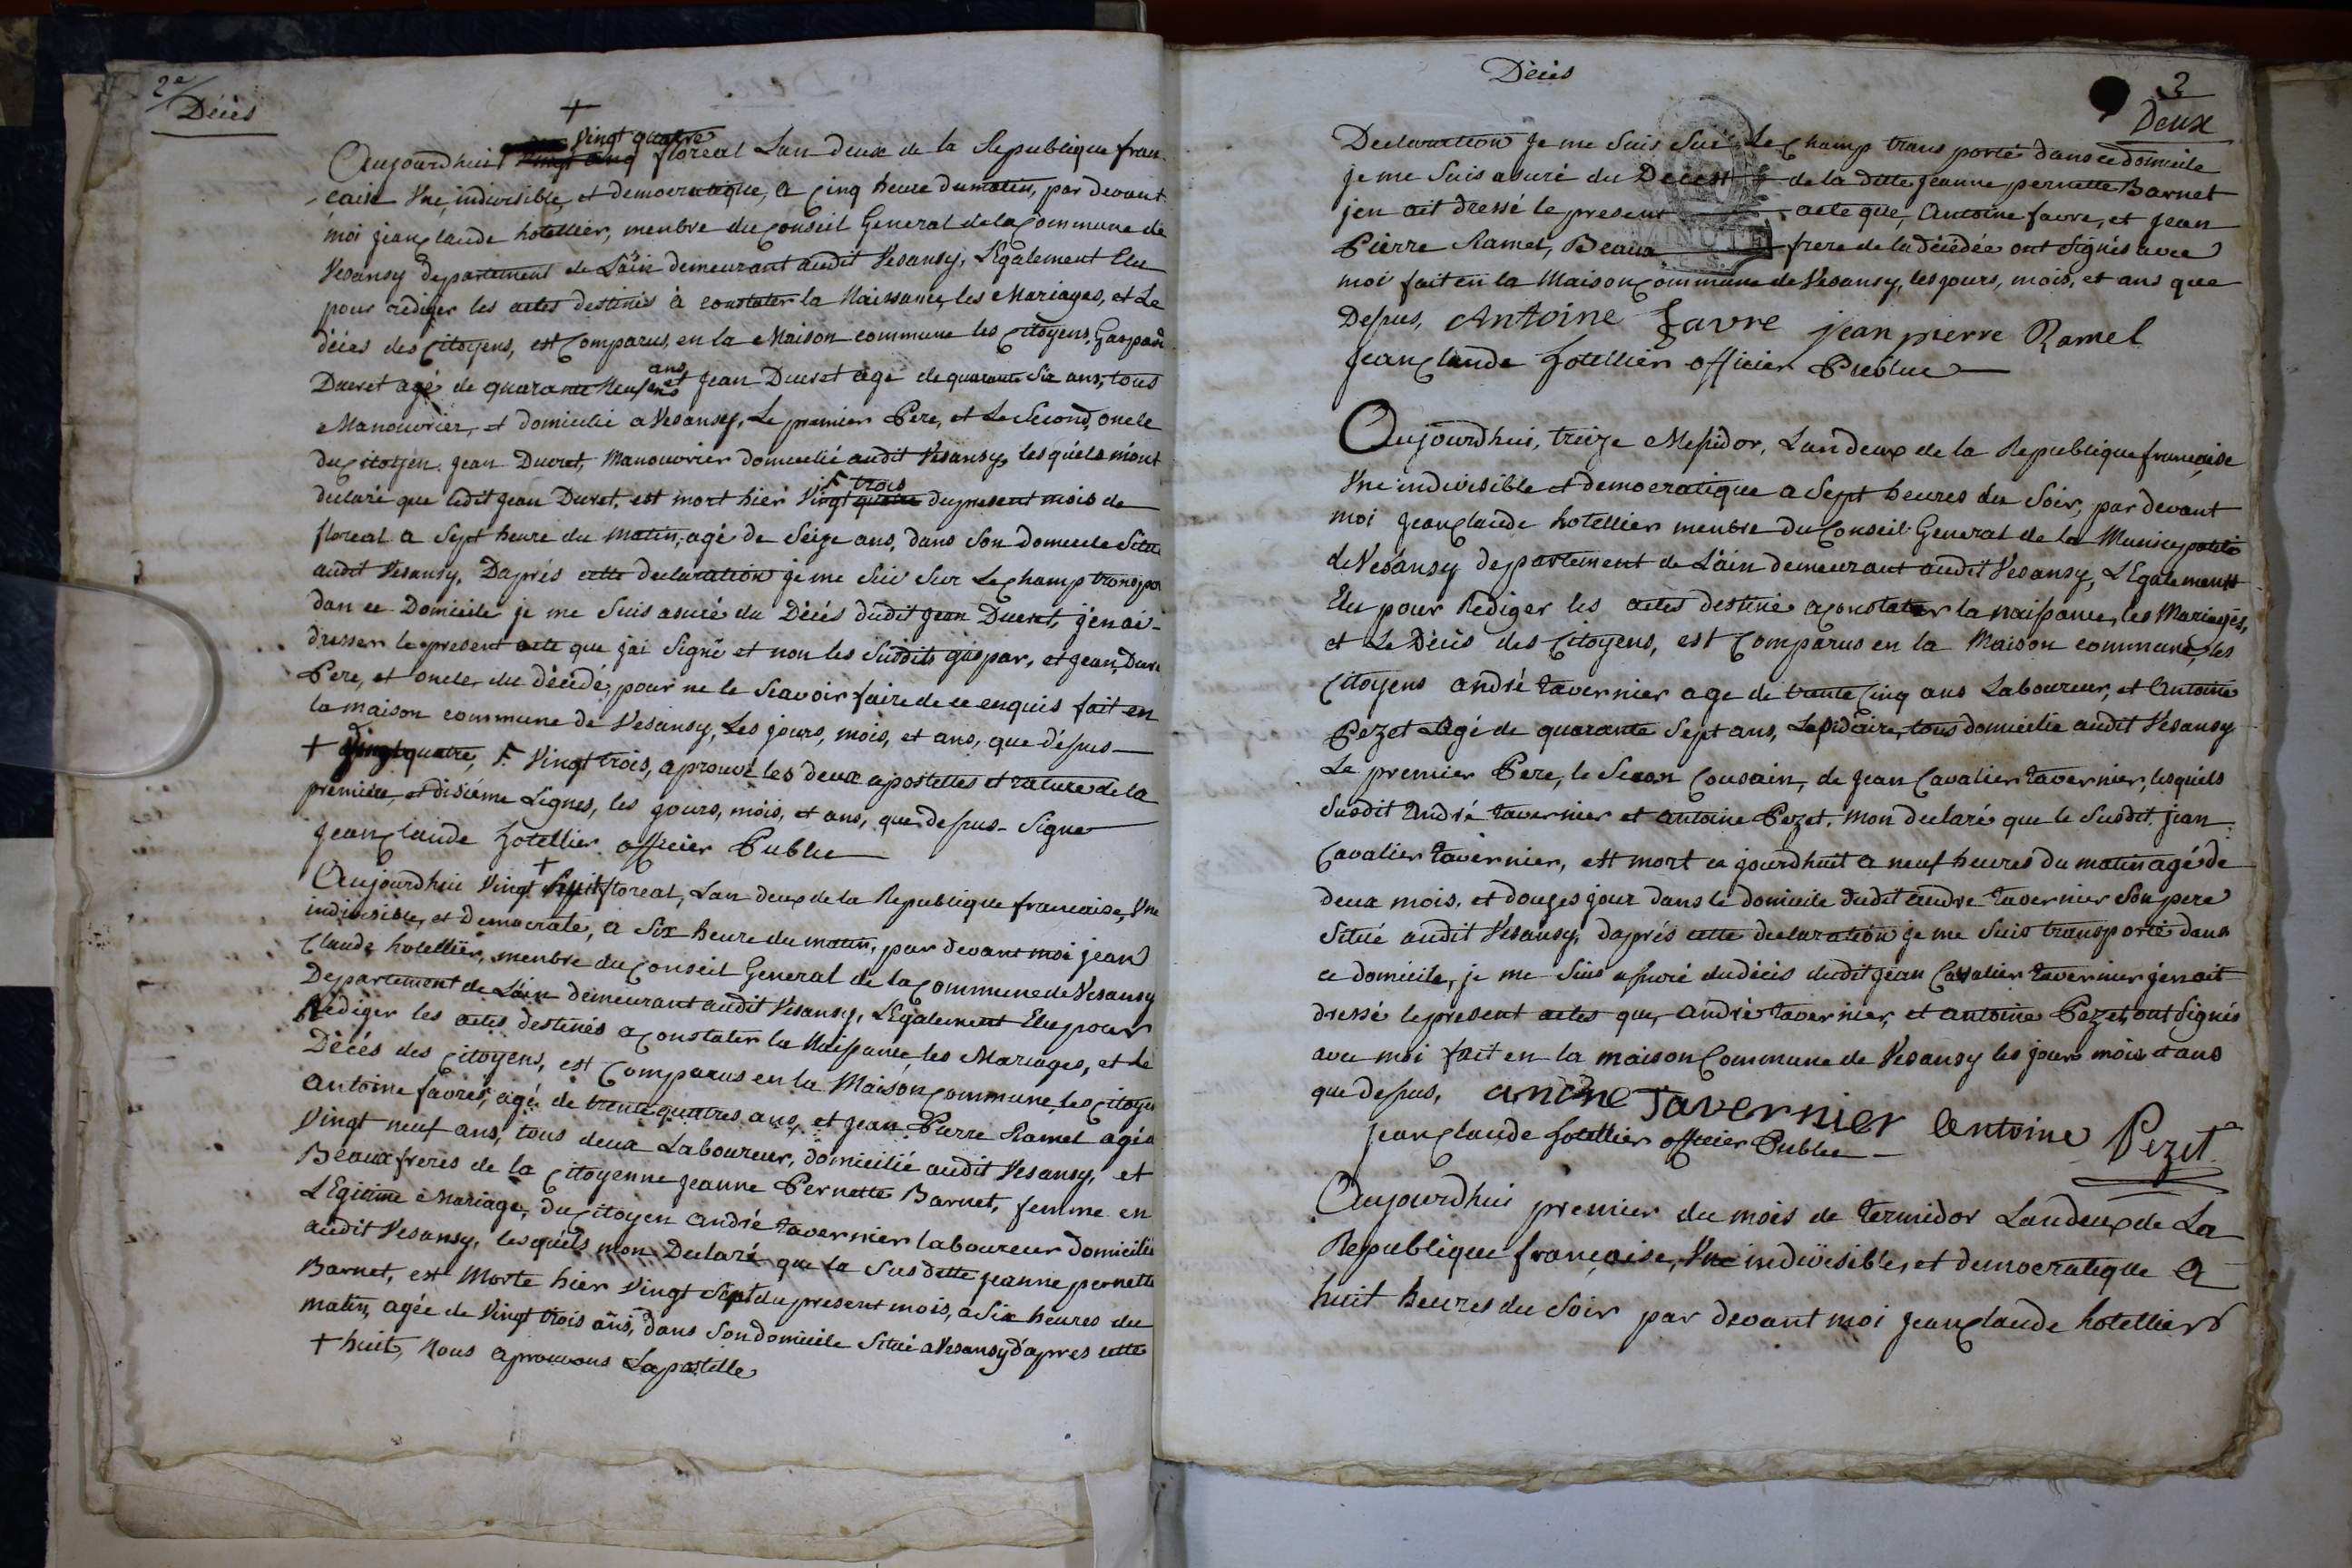 2e
Décès
+
vingt quatre
Aujourdhuit vingt cinq floreal Lan deux de la Republique fran-
caise Une, indivisible, et democratique, a Cinq heure du matin, par devant
moi jean Claude hotellier, menbre du Conseil General de la Commune de
Vesansy departement de Lain demeurant audit Vesansy, Légalement Elu
pour rediger les actes destinés à constater la Naissance, les Mariages, et Le
décès des Citoyens, est Comparus, en la Maison commune les Citoyens, Gaspard
Ducret agé de quarante Neuf ans et jean Ducret agé de quarante Six ans, tous
Manouvrier, et domicilié a Vesansy, Le premier Pere, et Le Second, oncle
du Citoyen jean Ducret, Manouvrier domicilié audit Vesansy, lesquels m'ont
trois
declaré que ledit jean Ducret, est mort hier Vingt quatre du present mois de
floreal a Sept heure du matin, agé de Seize ans, dans Son domicile Situé
audit Vesansy, Daprés cette declaration je me Suis Sur Le Champ transpor
dan ce Domicile je me Suis asuré du Décés dudit jean Ducret, j'en ai-
dresser le present acte que jai Signé et non les Susdits gaspar, et jean, Ducre
Pere, et oncle, du décédé, pour ne le Scavoir faire de ce enquis fait en
la maison commune de Vesansy, Les jours, mois, et ans, que d'essus
+ Vingt quatre, F. Vingt trois, aprouve les deux apostelles et rature de la
premiere, et disiéme Lignes, les jours, mois, et ans, que dessus - Signe
jean Claude hotellier officier Public
+
Aujourdhui Vingt Sept floreal, Lan deux de la Republique francaise, Une
indivisible, et Democrate, a Six heure du matin, par devant moi jean
Claude hotellier, menbre du Conseil General de la Commune de Vesansy
Departement de Lain demeurant audit Vesansy, Légalement Elu pour
Rédiger les actes destinés a Constater la Naissance, les Mariages, et Le
Décés des Citoyens, est Comparus en la Maison Commune, les Citoye
Antoine favres, agé de trente quatres ans, et jean Pierre Ramel agé d
Vingt neuf ans, tous deux Laboureur, domicilié audit Vesansy, et
Beaux freres de la Citoyenne jeanne Pernette Barnet, femme en
Légitime Mariage, du Citoyen andré tavernier laboureur domicilié
audit Vesansy, lesquels mon Declaré que la Sus dette jeanne pernette
Barnet, est Morte hier Vingt Sept du present mois, a Six heures du
matin, agée de Vingt trois ans, dans Son domicile Situé a Vesansy d'apres cette
+ huit, Nous aprouvons Lapostille
Décés
2
Deux
Declaration je me Suis Sur Le Champ trans porté dans ce domicile
je me Suis asuré du Décest de la ditte jeanne pernette Barnet
jen ait dressé le present acte que, Antoine favre, et jean
Pierre Ramel, Beaux frere de la décédée ont Signés avec
moi fait en la Maison Commune de Vesansy, les jours, mois, et ans que
Dessus, Antoine favre jean pierre Ramel
jean Claude hotellier officier Public
Aujourdhui, treize Messidor, Lan deux de la Republique française
Une indivisible et democratique a Sept heures du Soir, par devant
moi jean Claude hotellier menbre du Conseil General de la Municipalité
de Vesansy departement de Lain demeurant audit Vesansy, Légalement
Elu pour Rediger les actes destiné a Constater la naissance, les Mariages,
et Le Décés des Citoyens, est Comparus en la Maison commune, les
Citoyens andré tavernier age de trente Cinq ans Laboureur, et Antoine
Pezet Agé de quarante Sept ans, Lapidaire, tous domicilié audit Vesansy
Le premier Pere, le Secon Cousain, de jean Cavalier tavernier, lesquels
Susdit André tavernier et antoine Pezet, mon declaré que le Susdit jean
Cavalier tavernier, est mort ce jourdhuit a neuf heures du matin agé de
deux mois, et douzes jour dans le domicile dudit andre tavernier Son pere
Situé audit Vesansy, daprés cette declaration je me Suis transporté dans
ce domicile, je me Suis assuré du décés dudit jean Cavalier tavernier jen ait
dressé le present actes que, andré tavernier, et antoine Pezet, ont Signés
avec moi fait en la maison Commune de Vesansy les jours mois et ans
que dessus, andre Tavernier Antoine Pezet
jean Claude hotellier officier Public
Aujourdhui premier du mois de termidor Lan deux de La
Republique française, Une indivisible, et democratique a
huit heures du Soir par devant moi jean Claude hotellier